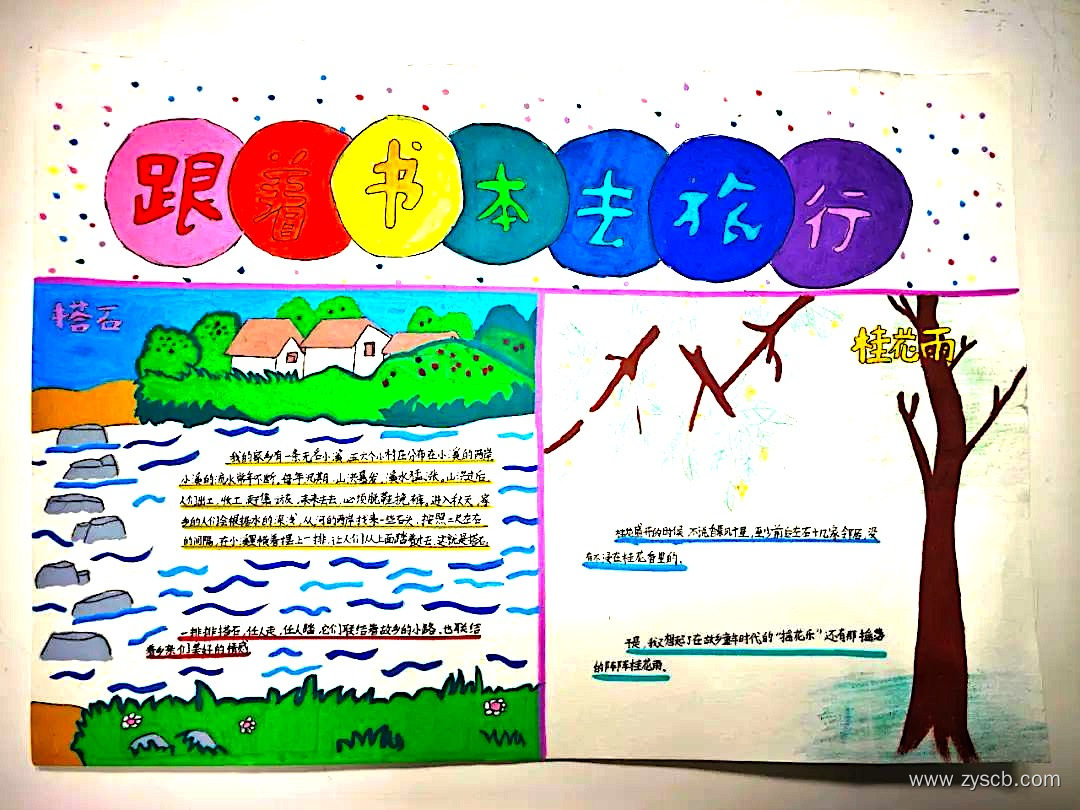 跟着书本去旅行
搭石
我的家乡有一条无名小溪,五六个小村庄分布在小溪的两岸
小溪的流水常年不断。每年汛期,山洪暴发,溪水猛涨。山洪过后,
人们出工、收工、赶集、访友,来来去去,必须脱鞋挽裤。进入秋天,家
乡的人们会根据水的深浅,从河的两岸找来一些石头,按照二尺左右
的间隔,在小溪里横着摆上一排,让人们从上面踏着过去,这就是搭石。
一排排搭石,任人走,任人踏,它们联结着故乡的小路,也联结
着乡亲们美好的情感
桂花雨
桂花盛开的时候,不说香飘几十里,至少前后左右十几家邻居,没
有不浸在桂花香里的。
于是,我又想起了在故乡童年时代的“摇花乐”还有那摇落
的阵阵桂花雨。
www.zyscb.com